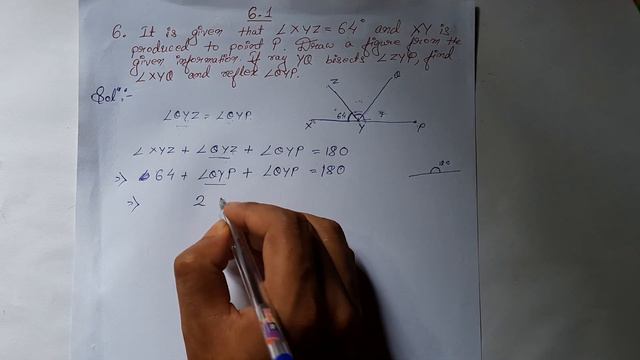 6.1
6. It is given that ∠XYZ = 64° and XY is
produced to point P. Draw a figure from the
given information. If ray YQ bisects ∠ZYP, find
∠XYQ and reflex ∠QYP.
Solⁿ:-
Z
Q
64
X
Y
P
∠QYZ = ∠QYP
∠XYZ + ∠QYZ + ∠QYP = 180
⇒ 64 + ∠QYP + ∠QYP = 180
180
⇒ 2